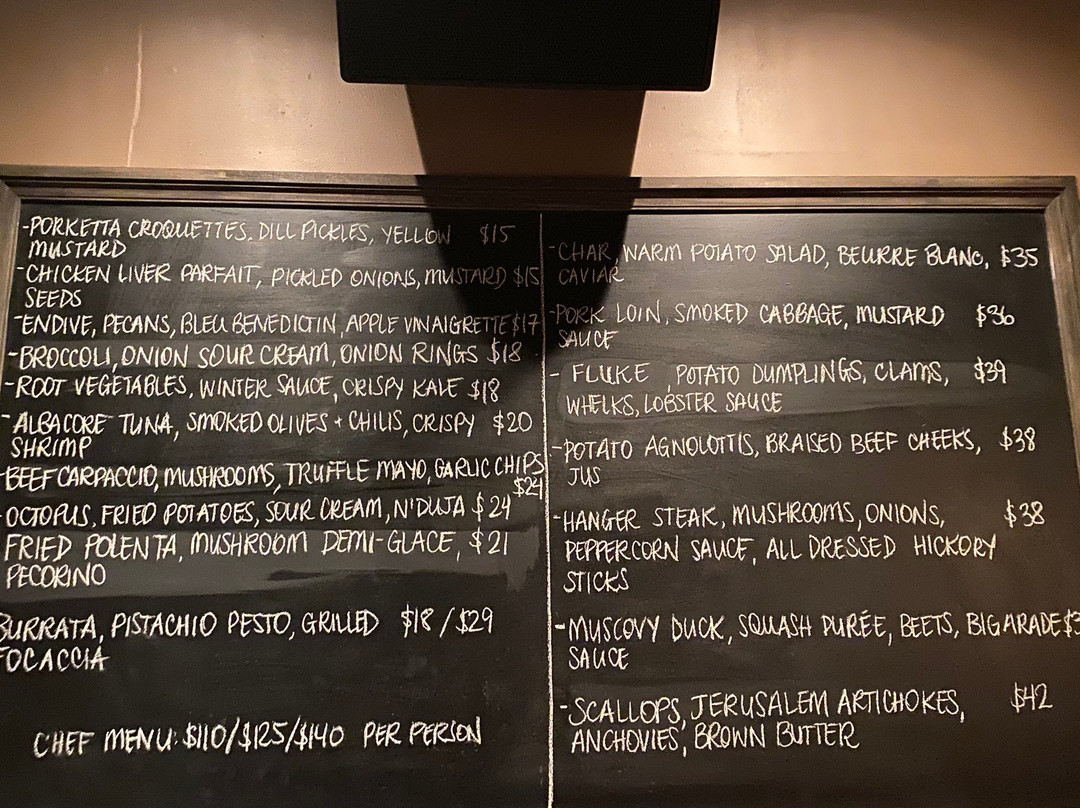 -PORKETTA CROQUETTES, DILL PICKLES, YELLOW $15
MUSTARD
-CHICKEN LIVER PARFAIT, PICKLED ONIONS, MUSTARD $15
SEEDS
-ENDIVE, PECANS, BLEU BENEDICTIN, APPLE VINAIGRETTE $17
-BROCCOLI, ONION SOUR CREAM, ONION RINGS $18
-ROOT VEGETABLES, WINTER SAUCE, CRISPY KALE $18
-ALBACORE TUNA, SMOKED OLIVES + CHILIS, CRISPY $20
SHRIMP
-BEEF CARPACCIO, MUSHROOMS, TRUFFLE MAYO, GARLIC CHIPS
$24
-OCTOPUS, FRIED POTATOES, SOUR CREAM, N'DUJA $24
FRIED POLENTA, MUSHROOM DEMI-GLACE, $21
PECORINO
BURRATA, PISTACHIO PESTO, GRILLED $18/$29
FOCACCIA
CHEF MENU: $110/$125/$140 PER PERSON
-CHAR, WARM POTATO SALAD, BEURRE BLANC, $35
CAVIAR
-PORK LOIN, SMOKED CABBAGE, MUSTARD $36
SAUCE
- FLUKE, POTATO DUMPLINGS, CLAMS, $39
WHELKS, LOBSTER SAUCE
-POTATO AGNOLOTTIS, BRAISED BEEF CHEEKS, $38
JUS
-HANGER STEAK, MUSHROOMS, ONIONS, $38
PEPPERCORN SAUCE, ALL DRESSED HICKORY
STICKS
-MUSCOVY DUCK, SQUASH PURÉE, BEETS, BIGARADE
SAUCE
-SCALLOPS, JERUSALEM ARTICHOKES, $42
ANCHOVIES, BROWN BUTTER